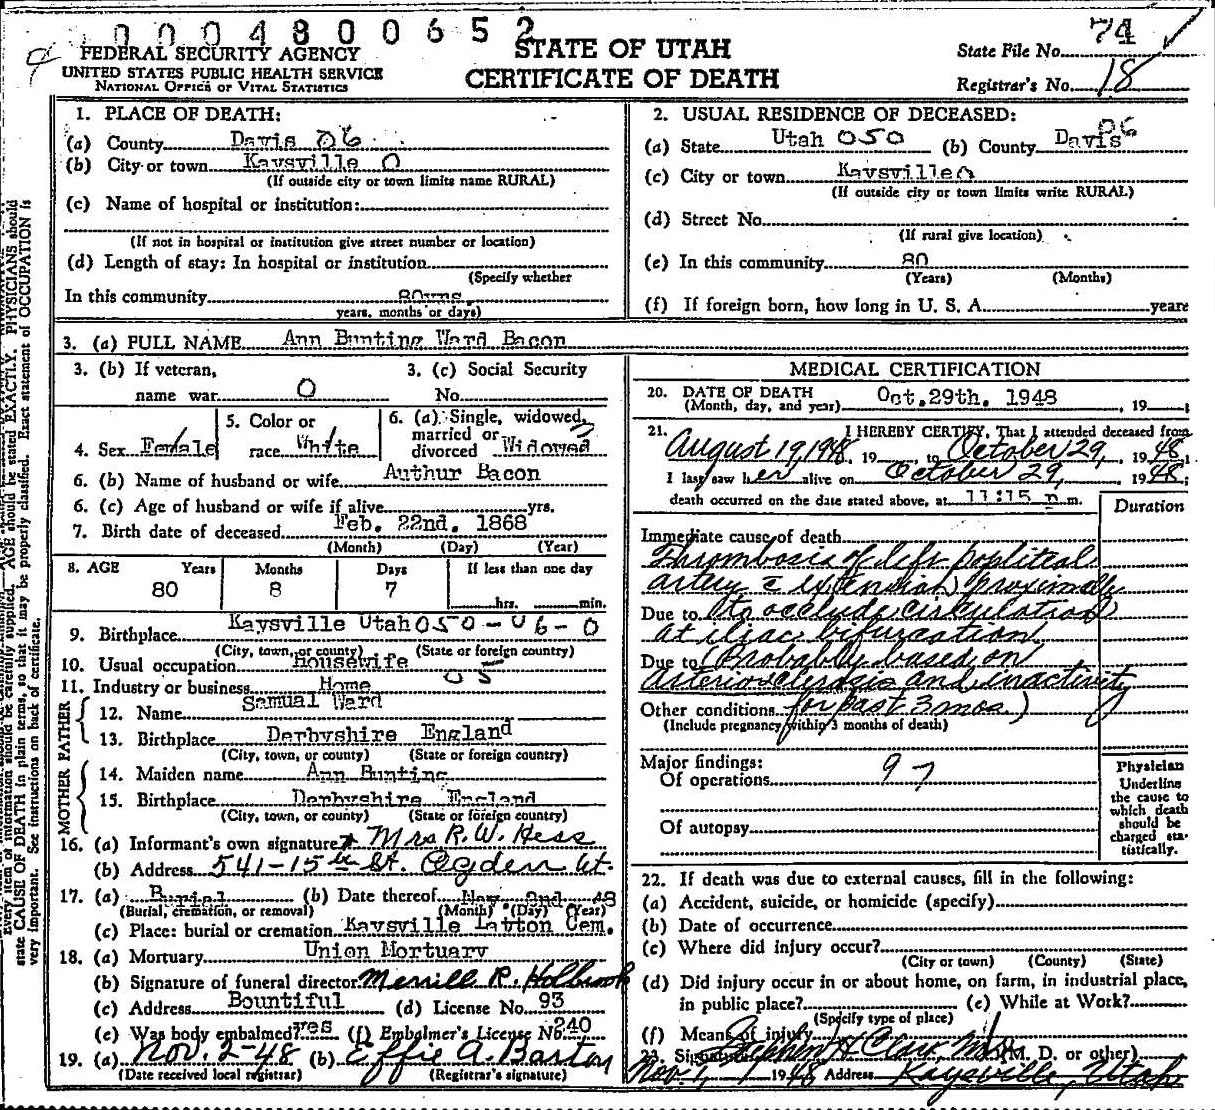 0004800652
FEDERAL SECURITY AGENCY
UNITED STATES PUBLIC HEALTH SERVICE
NATIONAL OFFICE OF VITAL STATISTICS
STATE OF UTAH
CERTIFICATE OF DEATH
State File No. 74
Registrar's No. 18
1. PLACE OF DEATH:
(a) County Davis 06
(b) City or town Kaysville 0
(If outside city or town limits name RURAL)
(c) Name of hospital or institution:
(If not in hospital or institution give street number or location)
(d) Length of stay: In hospital or institution
(Specify whether
In this community 80yrs.
years, months or days)
2. USUAL RESIDENCE OF DECEASED:
(a) State Utah 050 (b) County Davis 06
(c) City or town Kaysville 0
(If outside city or town limits write RURAL)
(d) Street No.
(If rural give location)
(e) In this community 80
(Years) (Months)
(f) If foreign born, how long in U. S. A. years
3. (a) FULL NAME Ann Bunting Ward Bacon
3. (b) If veteran, 3. (c) Social Security
name war 0 No.
4. Sex Female
5. Color or
race White
6. (a) Single, widowed,
married or
divorced Widowed
6. (b) Name of husband or wife Authur Bacon
6. (c) Age of husband or wife if alive yrs.
7. Birth date of deceased Feb. 22nd. 1868
(Month) (Day) (Year)
8. AGE Years Months Days If less than one day
80 8 7 hrs. min.
9. Birthplace Kaysville Utah 050-06-0
(City, town, or county) (State or foreign country)
10. Usual occupation Housewife
11. Industry or business Home 05
FATHER
12. Name Samual Ward
13. Birthplace Derbyshire England
(City, town, or county) (State or foreign country)
MOTHER
14. Maiden name Ann Bunting
15. Birthplace Derbyshire England
(City, town, or county) (State or foreign country)
16. (a) Informant's own signature Mrs R.W. Hess
(b) Address 541-15th St. Ogden Ut.
17. (a) Burial (b) Date thereof Nov. 2nd 48
(Burial, cremation, or removal) (Month) (Day) (Year)
(c) Place: burial or cremation Kaysville Layton Cem.
18. (a) Mortuary Union Mortuary
(b) Signature of funeral director Merrill R. Holbrook
(c) Address Bountiful (d) License No. 93
(e) Was body embalmed? yes (f) Embalmer's License No. 240
19. (a) Nov. 2-48 (b) Effie A. Barton
(Date received local registrar) (Registrar's signature)
MEDICAL CERTIFICATION
20. DATE OF DEATH
(Month, day, and year) Oct. 29th. 1948, 19 ;
21. I HEREBY CERTIFY, That I attended deceased from
August 19, 1948, 19 , to October 29, 1948;
I last saw her alive on October 29, 1948;
death occurred on the date stated above, at 11:15 p.m.
Duration
Immediate cause of death
Thrombosis of left popliteal
artery c extension proximally
Due to to occlude circulation
at iliac bifurcation
Due to (Probably based on
arteriosclerosis and inactivity
Other conditions for past 3 mos.)
(Include pregnancy within 3 months of death)
Major findings:
Of operations 97
Of autopsy
Physician
Underline
the cause to
which death
should be
charged sta-
tistically.
22. If death was due to external causes, fill in the following:
(a) Accident, suicide, or homicide (specify)
(b) Date of occurrence
(c) Where did injury occur?
(City or town) (County) (State)
(d) Did injury occur in or about home, on farm, in industrial place,
in public place? (e) While at Work?
(Specify type of place)
(f) Means of injury
23. Signature (M. D. or other)
Nov. 1, 1948 Address Kaysville, Utah
Every item of information should be carefully supplied. AGE should be stated EXACTLY. PHYSICIANS should
state CAUSE OF DEATH in plain terms, so that it may be properly classified. Exact statement of OCCUPATION is
very important. See instructions on back of certificate.